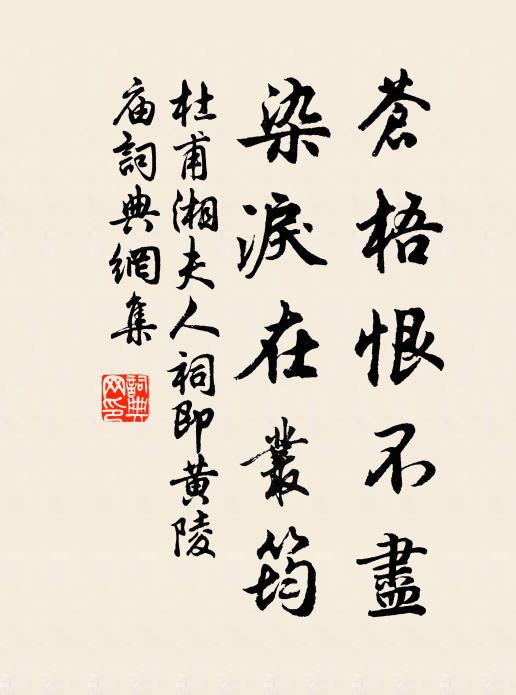 蒼梧恨不盡
染淚在叢筠
杜甫湘夫人祠即黄陵
庙詞典網集
詞典
网印